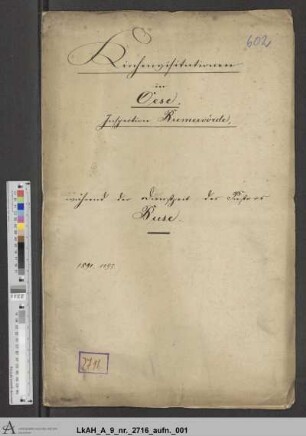 602
Kirchenvisitationen
in
Oese.
Inspection Bremervörde,
während der Dienstzeit des Pastors
Kruse.
1891. 1897
2716
LkAH_A_9_nr._2716_aufn._001